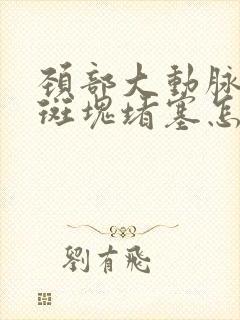 颈部大動脉
斑塊堵塞怎
劉有飛